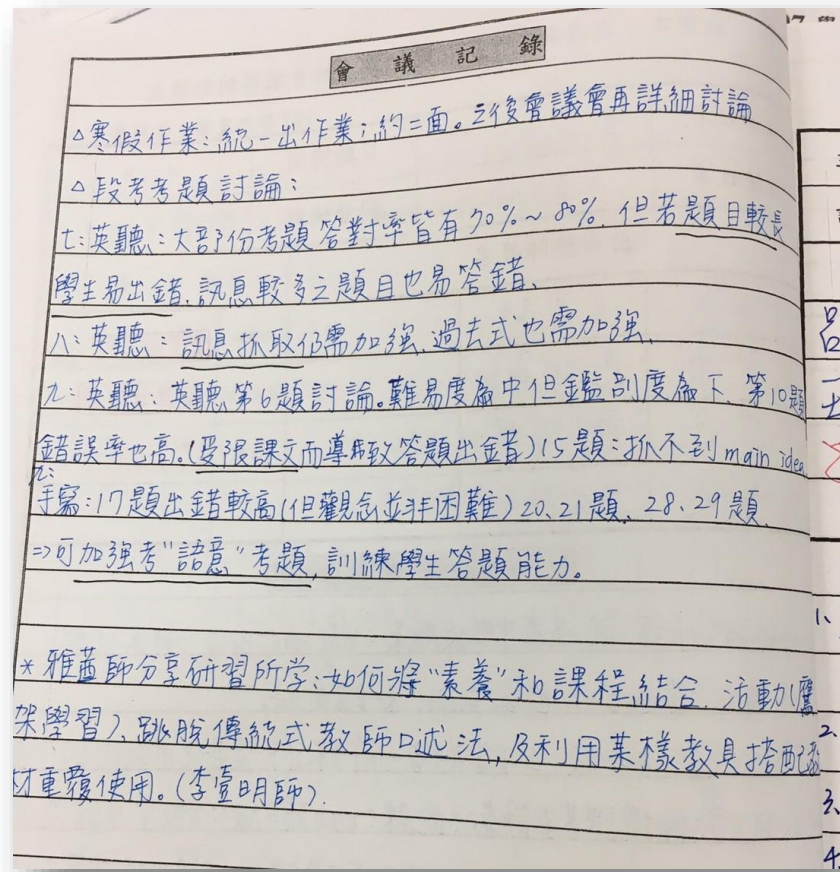 會議記錄
△寒假作業:統一出作業;約二面。之後會議會再詳細討論
△段考考題討論:
七:英聽:大部份考題答對率皆有70%~80%.但若題目較長
學生易出錯.訊息較多之題目也易答錯、
八:英聽:訊息抓取仍需加強.過去式也需加強.
九:英聽:英聽第6題討論。難易度為中但鑑別度為下.第10題
錯誤率也高。(受限課文而導致答題出錯)15題:抓不到main idea
九:
手寫:17題出錯較高(但觀念並非困難)20、21題、28、29題.
=>可加強考"語意"考題,訓練學生答題能力。
*雅茜師分享研習所学:如何將"素養"和課程結合.活動(鷹
架學習)、跳脫傳統式教師口述法,及利用某樣教具搭配
材重覆使用。(李壹明師).
呂
1、
2、
3、
4